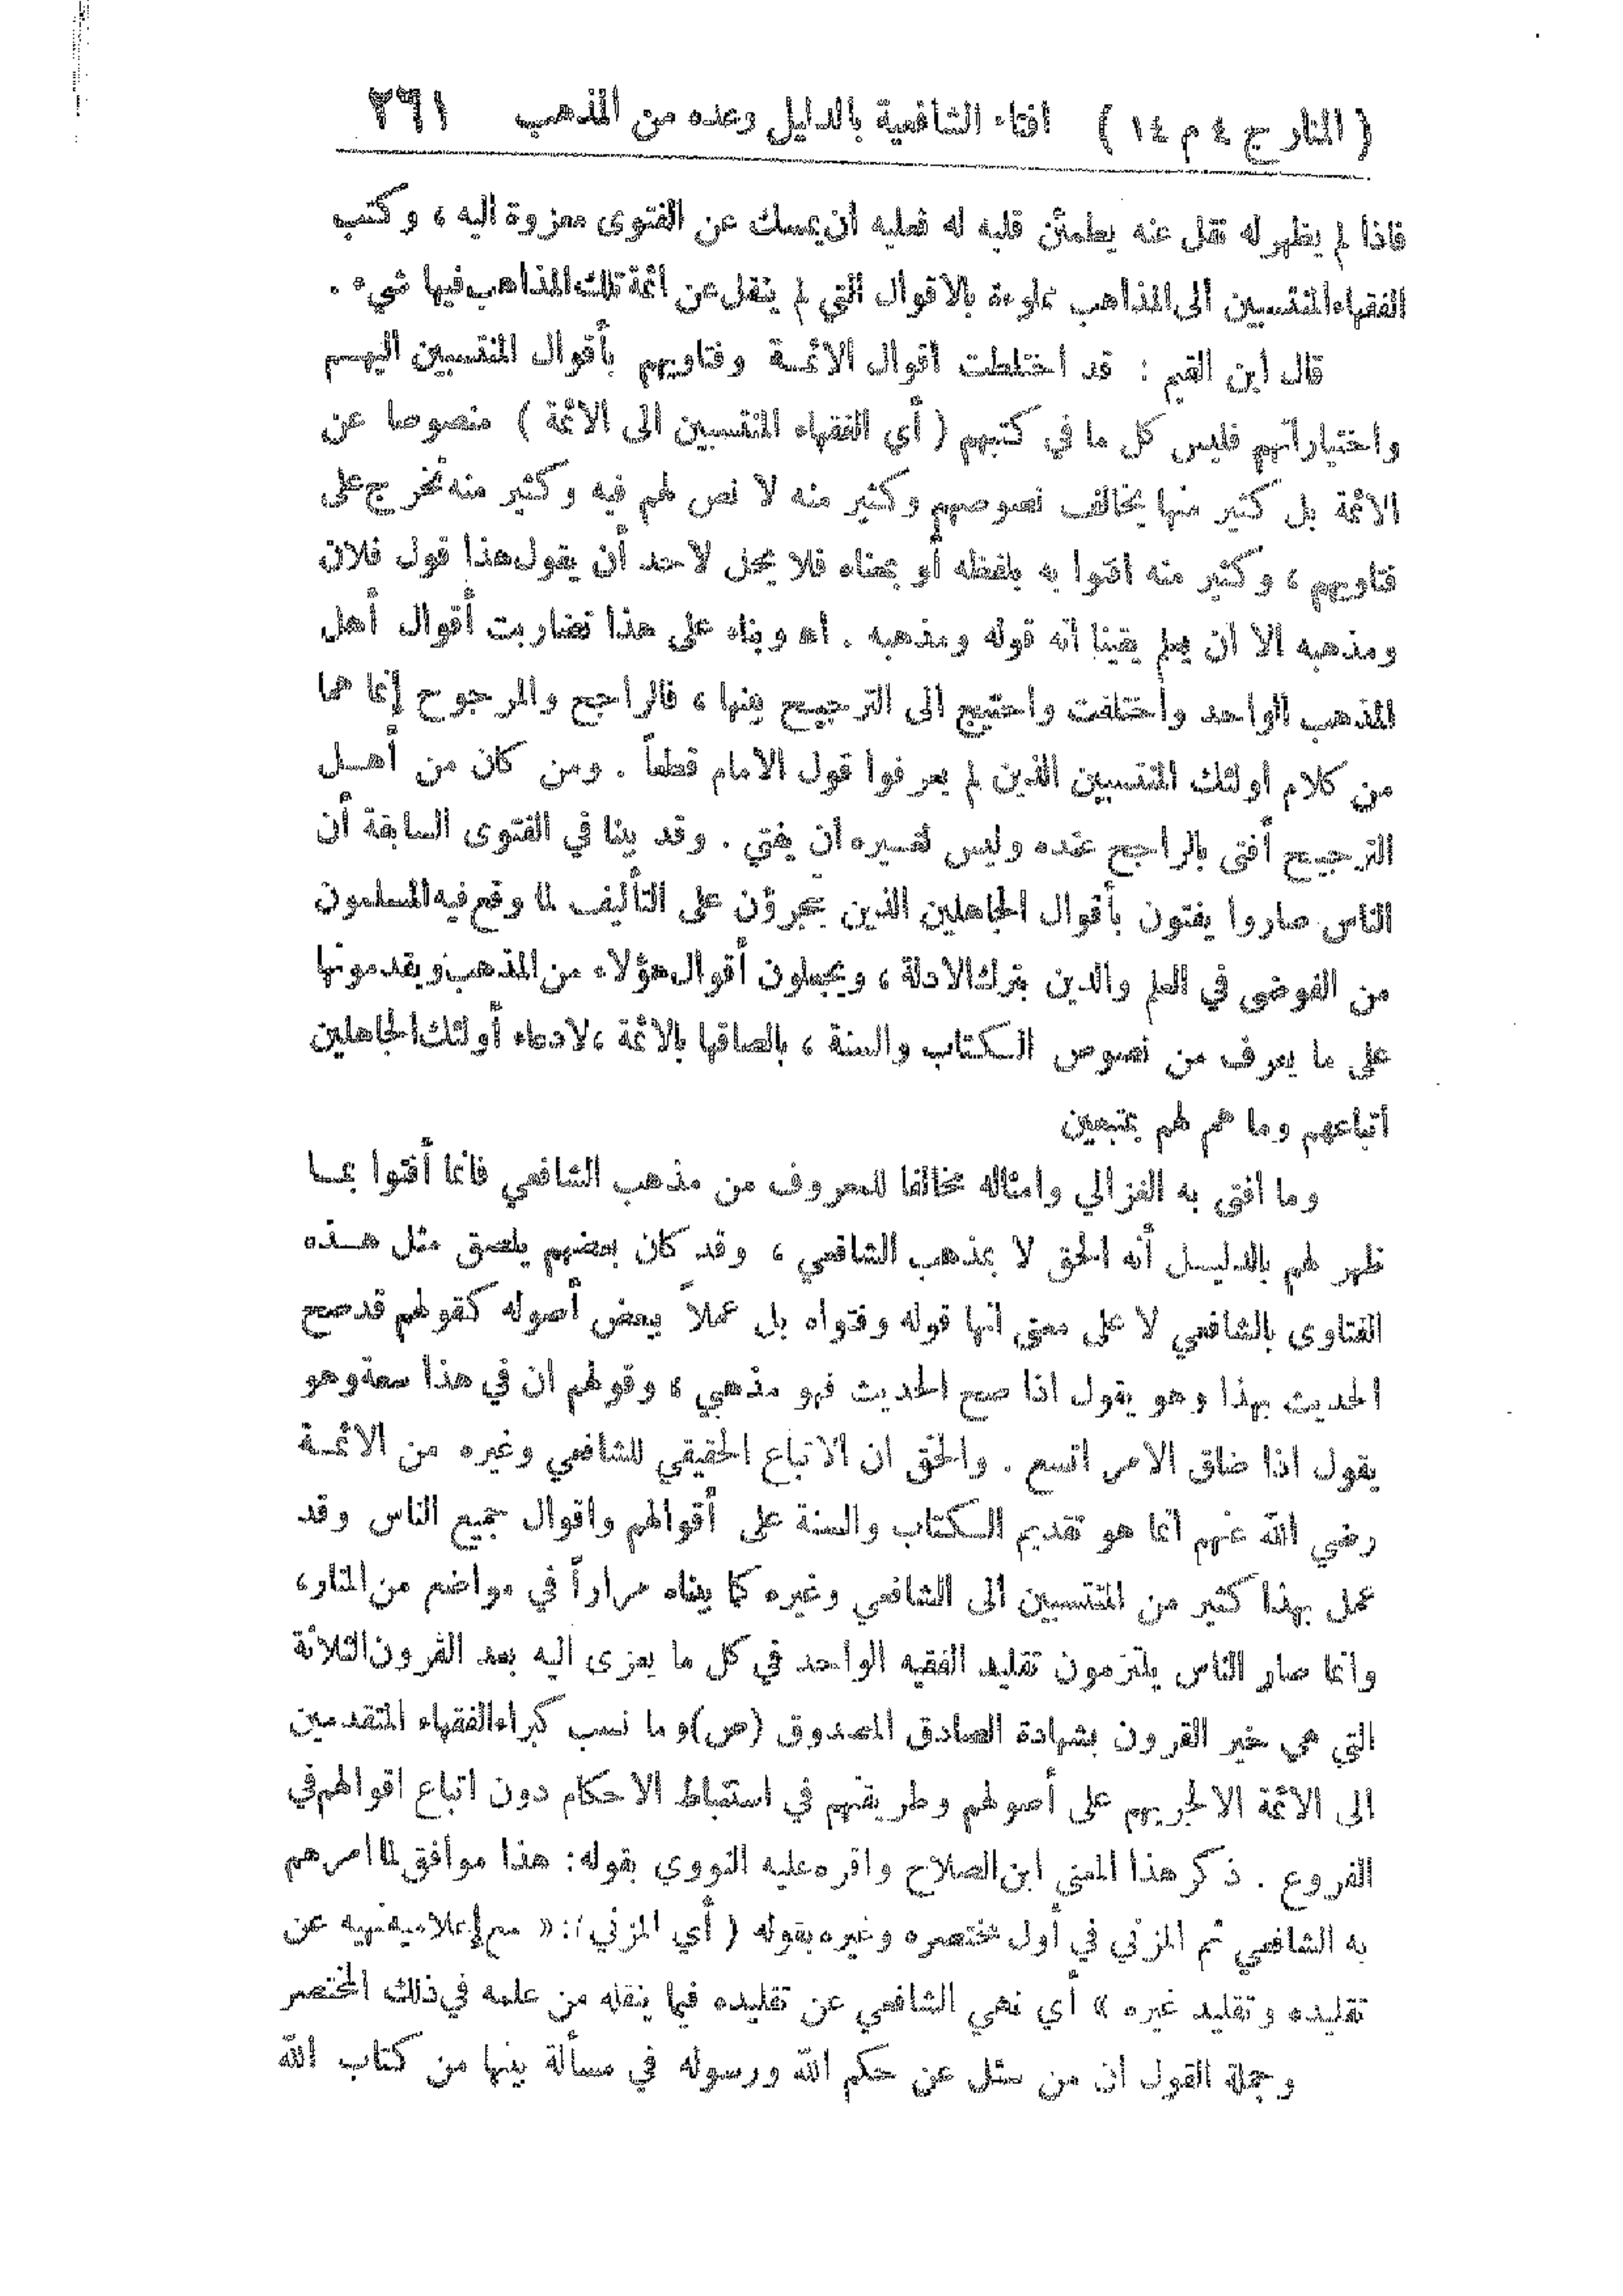 ( المنار ج ٤ م ١٤ ) افتاء الشافعية بالدليل وعده من المذهب ٢٦١
فاذا لم يظهر له نقل عنه يطمئن قلبه له فعليه ان يمسك عن الفتوى معزوة اليه ، وكتب
الفقهاء المنتسبين الى المذاهب مملوءة بالاقوال التي لم ينقل عن ائمة تلك المذاهب فيها شيء .
قال ابن القيم : قد اختلطت اقوال الائمـة وفتاويهم بأقوال المنتسبين اليهـم
واختياراتهم فليس كل ما في كتبهم ( أي الفقهاء المنتسبين الى الائمة ) منصوصا عن
الائمة بل كثير منها يخالف نصوصهم وكثير منه لا نص لهم فيه وكثير منه تُخرج على
فتاويهم ، وكثير منه افتوا به بلفظه أو بمعناه فلا يحل لاحد أن يقول هذا قول فلان
ومذهبه الا ان يعلم يقينا انه قوله ومذهبه . اهـ وبناء على هذا تضاربت أقوال أهل
المذهب الواحد واختلفت واحتيج الى الترجيح بينها ، فالراجح والمرجوح إنما هما
من كلام اولئك المنتسبين الذين لم يعرفوا قول الامام قطعاً . ومن كان من أهـل
الترجيح أفتى بالراجح عنده وليس لغـيره ان يفتي . وقد بينا في الفتوى السابقة أن
الناس صاروا يفتون بأقوال الجاهلين الذين يتجرؤن على التأليف لما وقع فيه المسلمون
من الفوضى في العلم والدين بترك الادلة ، ويجعلون أقوال هؤلاء من المذهب ويقدمونها
على ما يعرف من نصوص الـكتاب والسنة ، بالصاقها بالائمة ، لادعاء أولئك الجاهلين
أتباعهم وما هم لهم بمتبعين
وما افتى به الغزالي وامثاله مخالفا للمعروف من مذهب الشافعي فانما أفتوا بمـا
ظهر لهم بالدليـل أنه الحق لا بمذهب الشافعي ، وقد كان بعضهم يلصق مثل هـذه
الفتاوى بالشافعي لا على معنى انها قوله وفتواه بل عملاً ببعض أصوله كقولهم قد صح
الحديث بهذا وهو يقول اذا صح الحديث فهو مذهبي ، وقولهم ان في هذا سعة وهو
يقول اذا ضاق الامر اتسع . والحق ان الاتباع الحقيقي للشافعي وغيره من الائمـة
رضي الله عنهم انما هو تقديم الـكتاب والسنة على أقوالهم واقوال جميع الناس وقد
عمل بهذا كثير من المنتسبين الى الشافعي وغيره كما بيناه مراراً في مواضع من المنار ،
وانما صار الناس يلتزمون تقليد الفقيه الواحد في كل ما يعزى اليه بعد القرون الثلاثة
التي هي خير القرون بشهادة الصادق المصدوق (ص) وما نسب كبراء الفقهاء المتقدمين
الى الائمة الا لجريهم على أصولهم وطريقتهم في استنباط الاحكام دون اتباع اقوالهم في
الفروع . ذكر هذا المعنى ابن الصلاح واقره عليه النووي بقوله : هذا موافق لما امرهم
به الشافعي ثم المزني في أول مختصره وغيره بقوله ( أي المزني ) : « مع إعلاميه نهيه عن
تقليده وتقليد غيره » أي نهي الشافعي عن تقليده فيما ينقله من علمه في ذلك المختصر
وجملة القول ان من سئل عن حكم الله ورسوله في مسألة بينها من كتاب الله